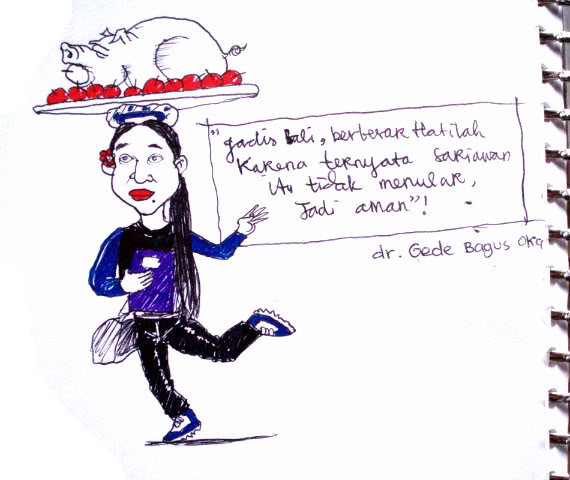 "gadis bali, berbesar Hatilah
Karena ternyata Sariawan
itu tidak menular,
Jadi aman"!
dr. Gede Bagus Oka